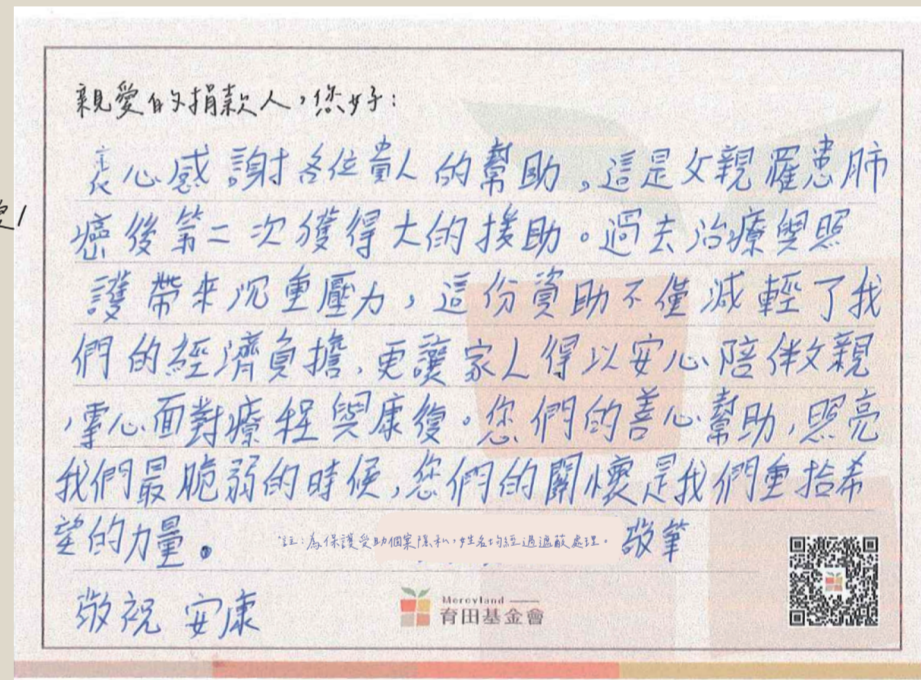 親愛的捐款人，您好：
衷心感謝各位貴人的幫助，這是父親罹患肺
癌後第二次獲得大的援助。過去治療與照
護帶來沉重壓力，這份資助不僅減輕了我
們的經濟負擔，更讓家人得以安心陪伴父親
，專心面對療程與康復。您們的善心幫助，照亮
我們最脆弱的時候，您們的關懷是我們重拾希
望的力量。
*註：為保護受助個案隱私，姓名均經過遮蔽處理。 敬筆
敬祝 安康
Mercyland
育田基金會